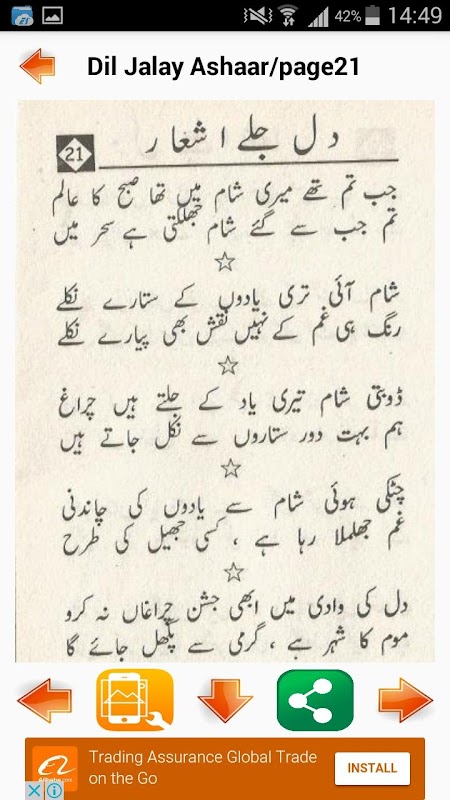 42% 14:49
Dil Jalay Ashaar/page21
دل جلے اشعار
21
جب تم تھے میری شام میں تھا صبح کا عالم
تم جب سے گئے شام جھلکتی ہے سحر میں
شام آئی تری یادوں کے ستارے نکلے
رنگ ہی غم کے نہیں نقش بھی پیارے نکلے
ڈوبتی شام تیری یاد کے جلتے ہیں چراغ
ہم بہت دور ستاروں سے نکل جاتے ہیں
چٹکی ہوئی شام سے یادوں کی چاندنی
غم جھلملا رہا ہے ، کسی جھیل کی طرح
دل کی وادی میں ابھی جشن چراغاں نہ کرو
موم کا شہر ہے ، گرمی سے پگھل جائے گا
Trading Assurance Global Trade
on the Go
INSTALL